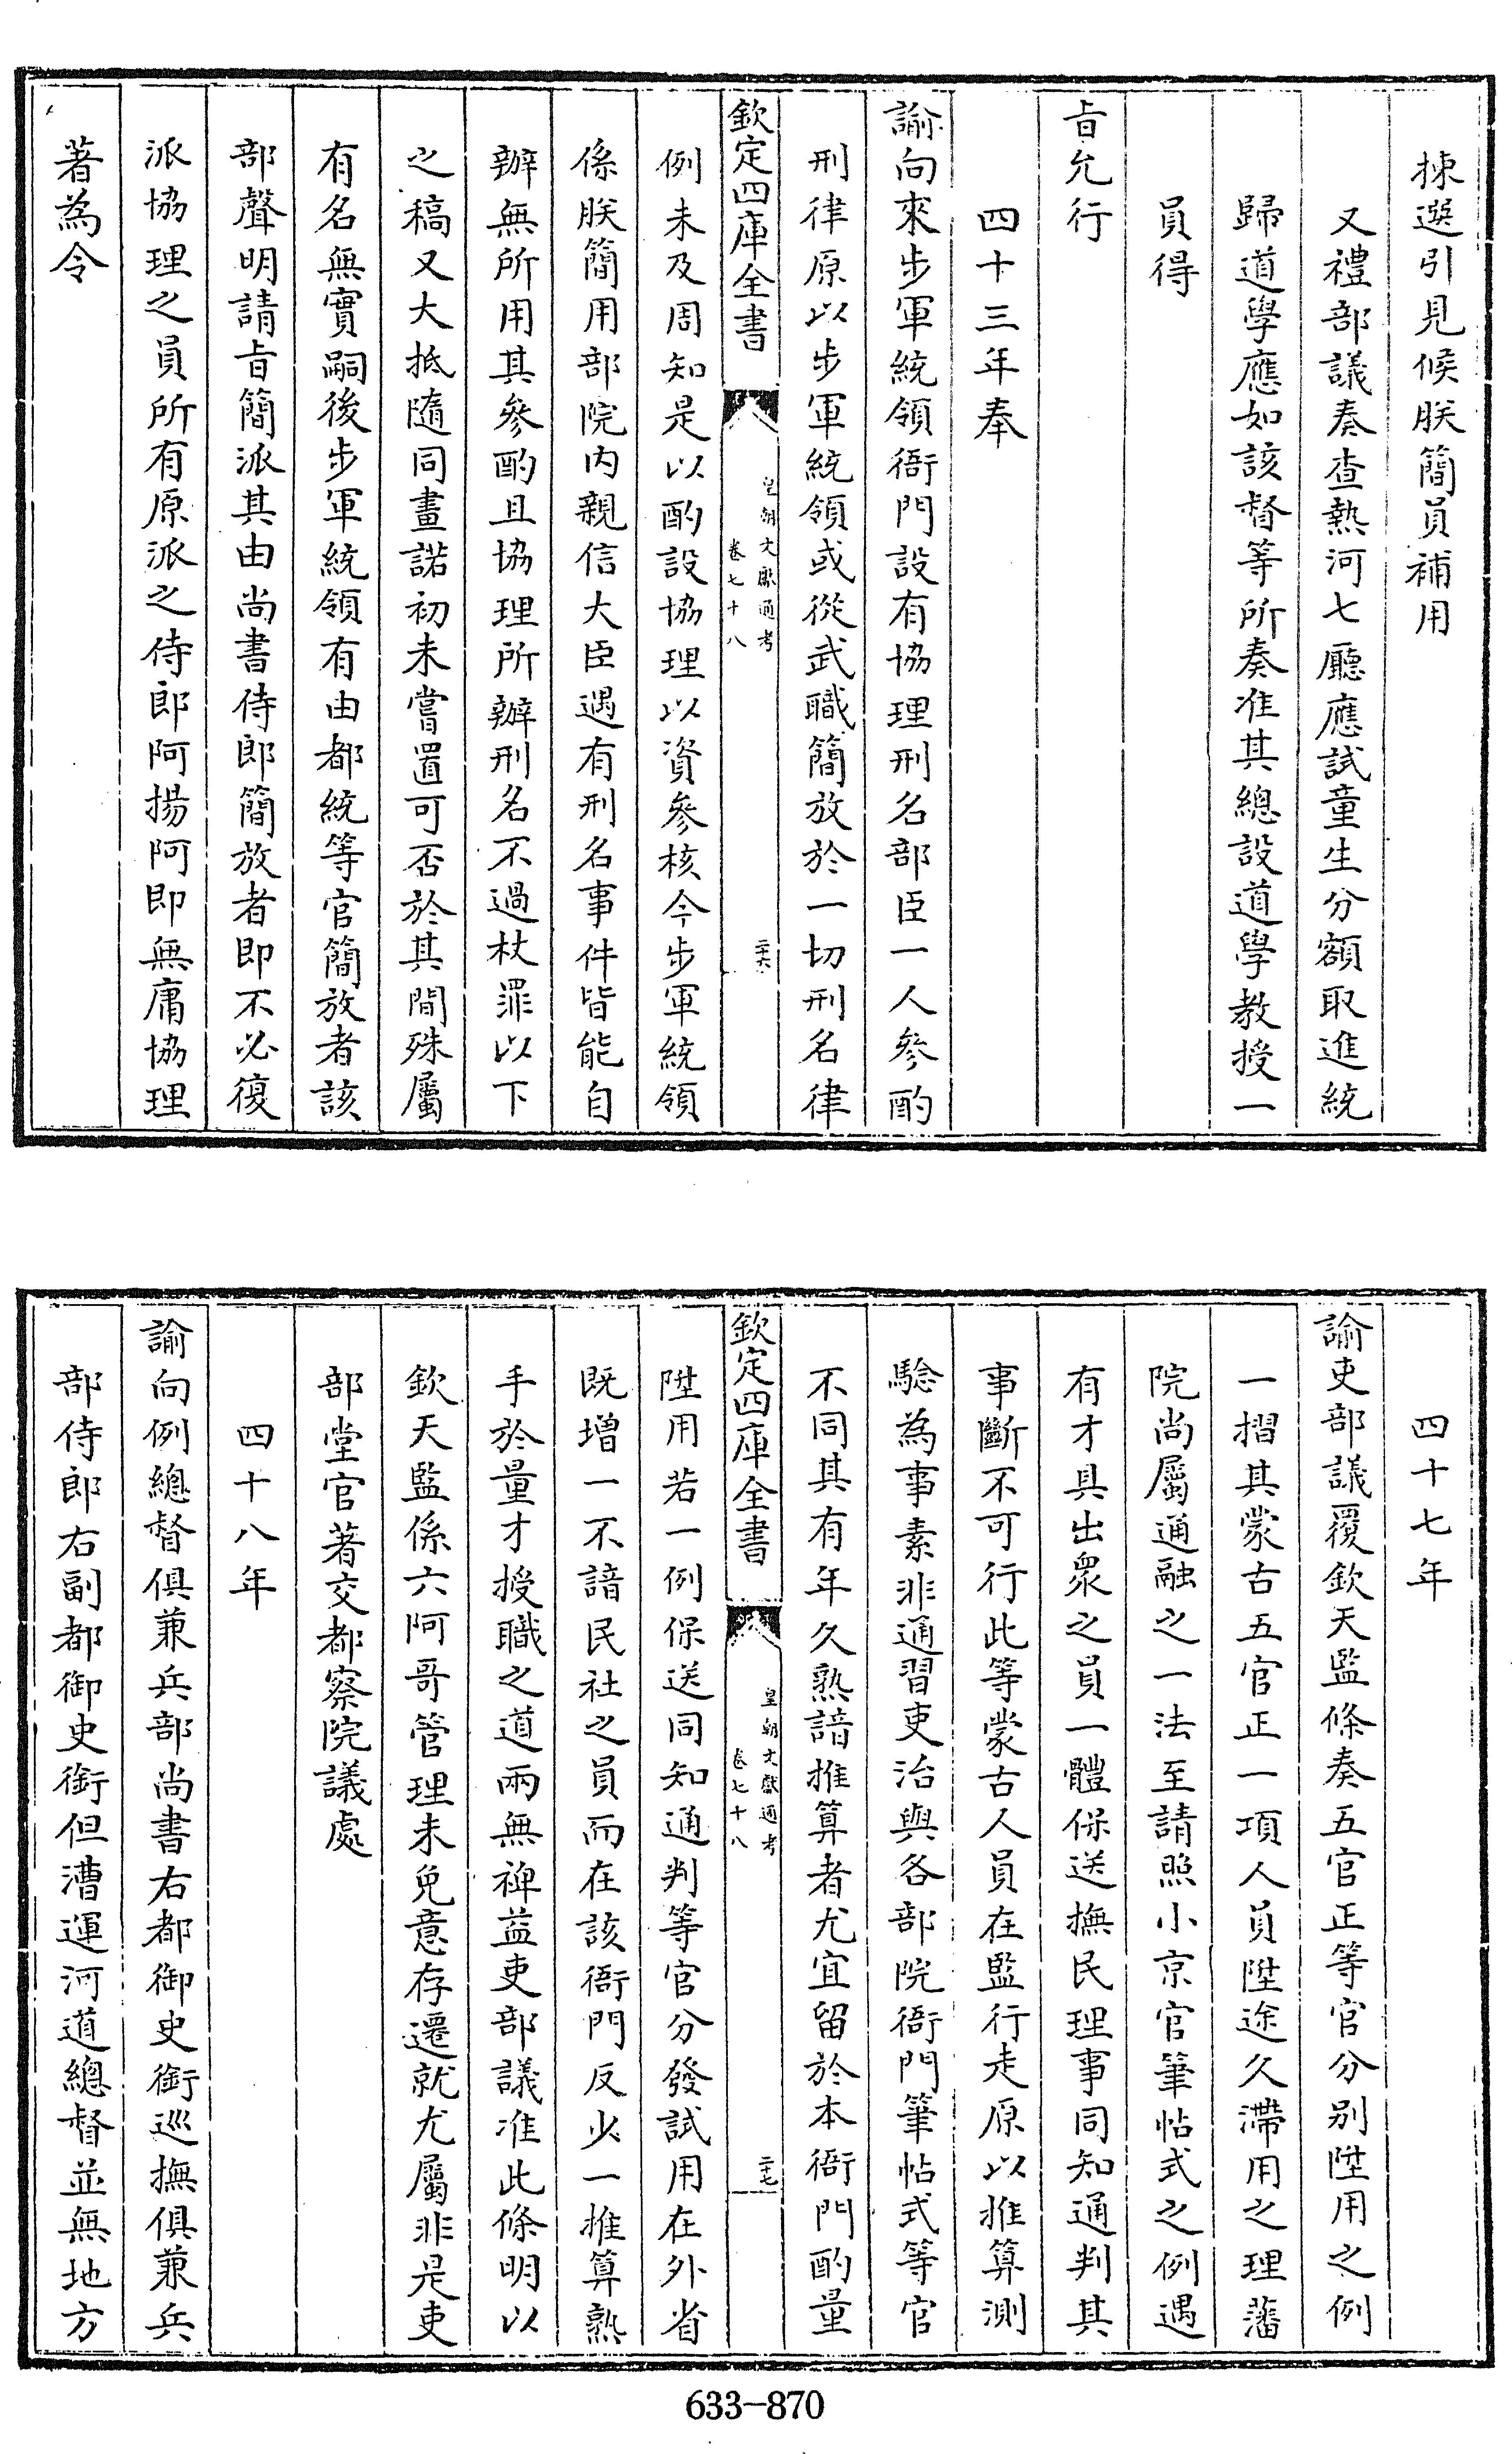 揀選引見候朕簡員補用
又禮部議奏查熱河七廳應試童生分額取進統
歸道學應如該督等所奏准其總設道學教授一
員得
旨允行
四十三年奉
諭向來步軍統領衙門設有協理刑名部臣一人參酌
刑律原以步軍統領或從武職簡放於一切刑名律
欽定四庫全書
皇朝文獻通考
卷七十八
二十六
例未及周知是以酌設協理以資參核今步軍統領
係朕簡用部院內親信大臣遇有刑名事件皆能自
辦無所用其參酌且協理所辦刑名不過杖罪以下
之稿又大抵隨同畫諾初未嘗置可否於其間殊屬
有名無實嗣後步軍統領有由都統等官簡放者該
部聲明請旨簡派其由尚書侍郎簡放者即不必復
派協理之員所有原派之侍郎阿揚阿即無庸協理
著為令
四十七年
諭吏部議覆欽天監條奏五官正等官分別陞用之例
一摺其蒙古五官正一項人員陞途久滯用之理藩
院尚屬通融之一法至請照小京官筆帖式之例遇
有才具出衆之員一體保送撫民理事同知通判其
事斷不可行此等蒙古人員在監行走原以推算測
驗為事素非通習吏治與各部院衙門筆帖式等官
不同其有年久熟諳推算者尤宜留於本衙門酌量
欽定四庫全書
皇朝文獻通考
卷七十八
二十七
陞用若一例保送同知通判等官分發試用在外省
既增一不諳民社之員而在該衙門反少一推算熟
手於量才授職之道兩無裨益吏部議准此條明以
欽天監係六阿哥管理未免意存遷就尤屬非是吏
部堂官著交都察院議處
四十八年
諭向例總督俱兼兵部尚書右都御史銜巡撫俱兼兵
部侍郎右副都御史銜但漕運河道總督並無地方
633-870